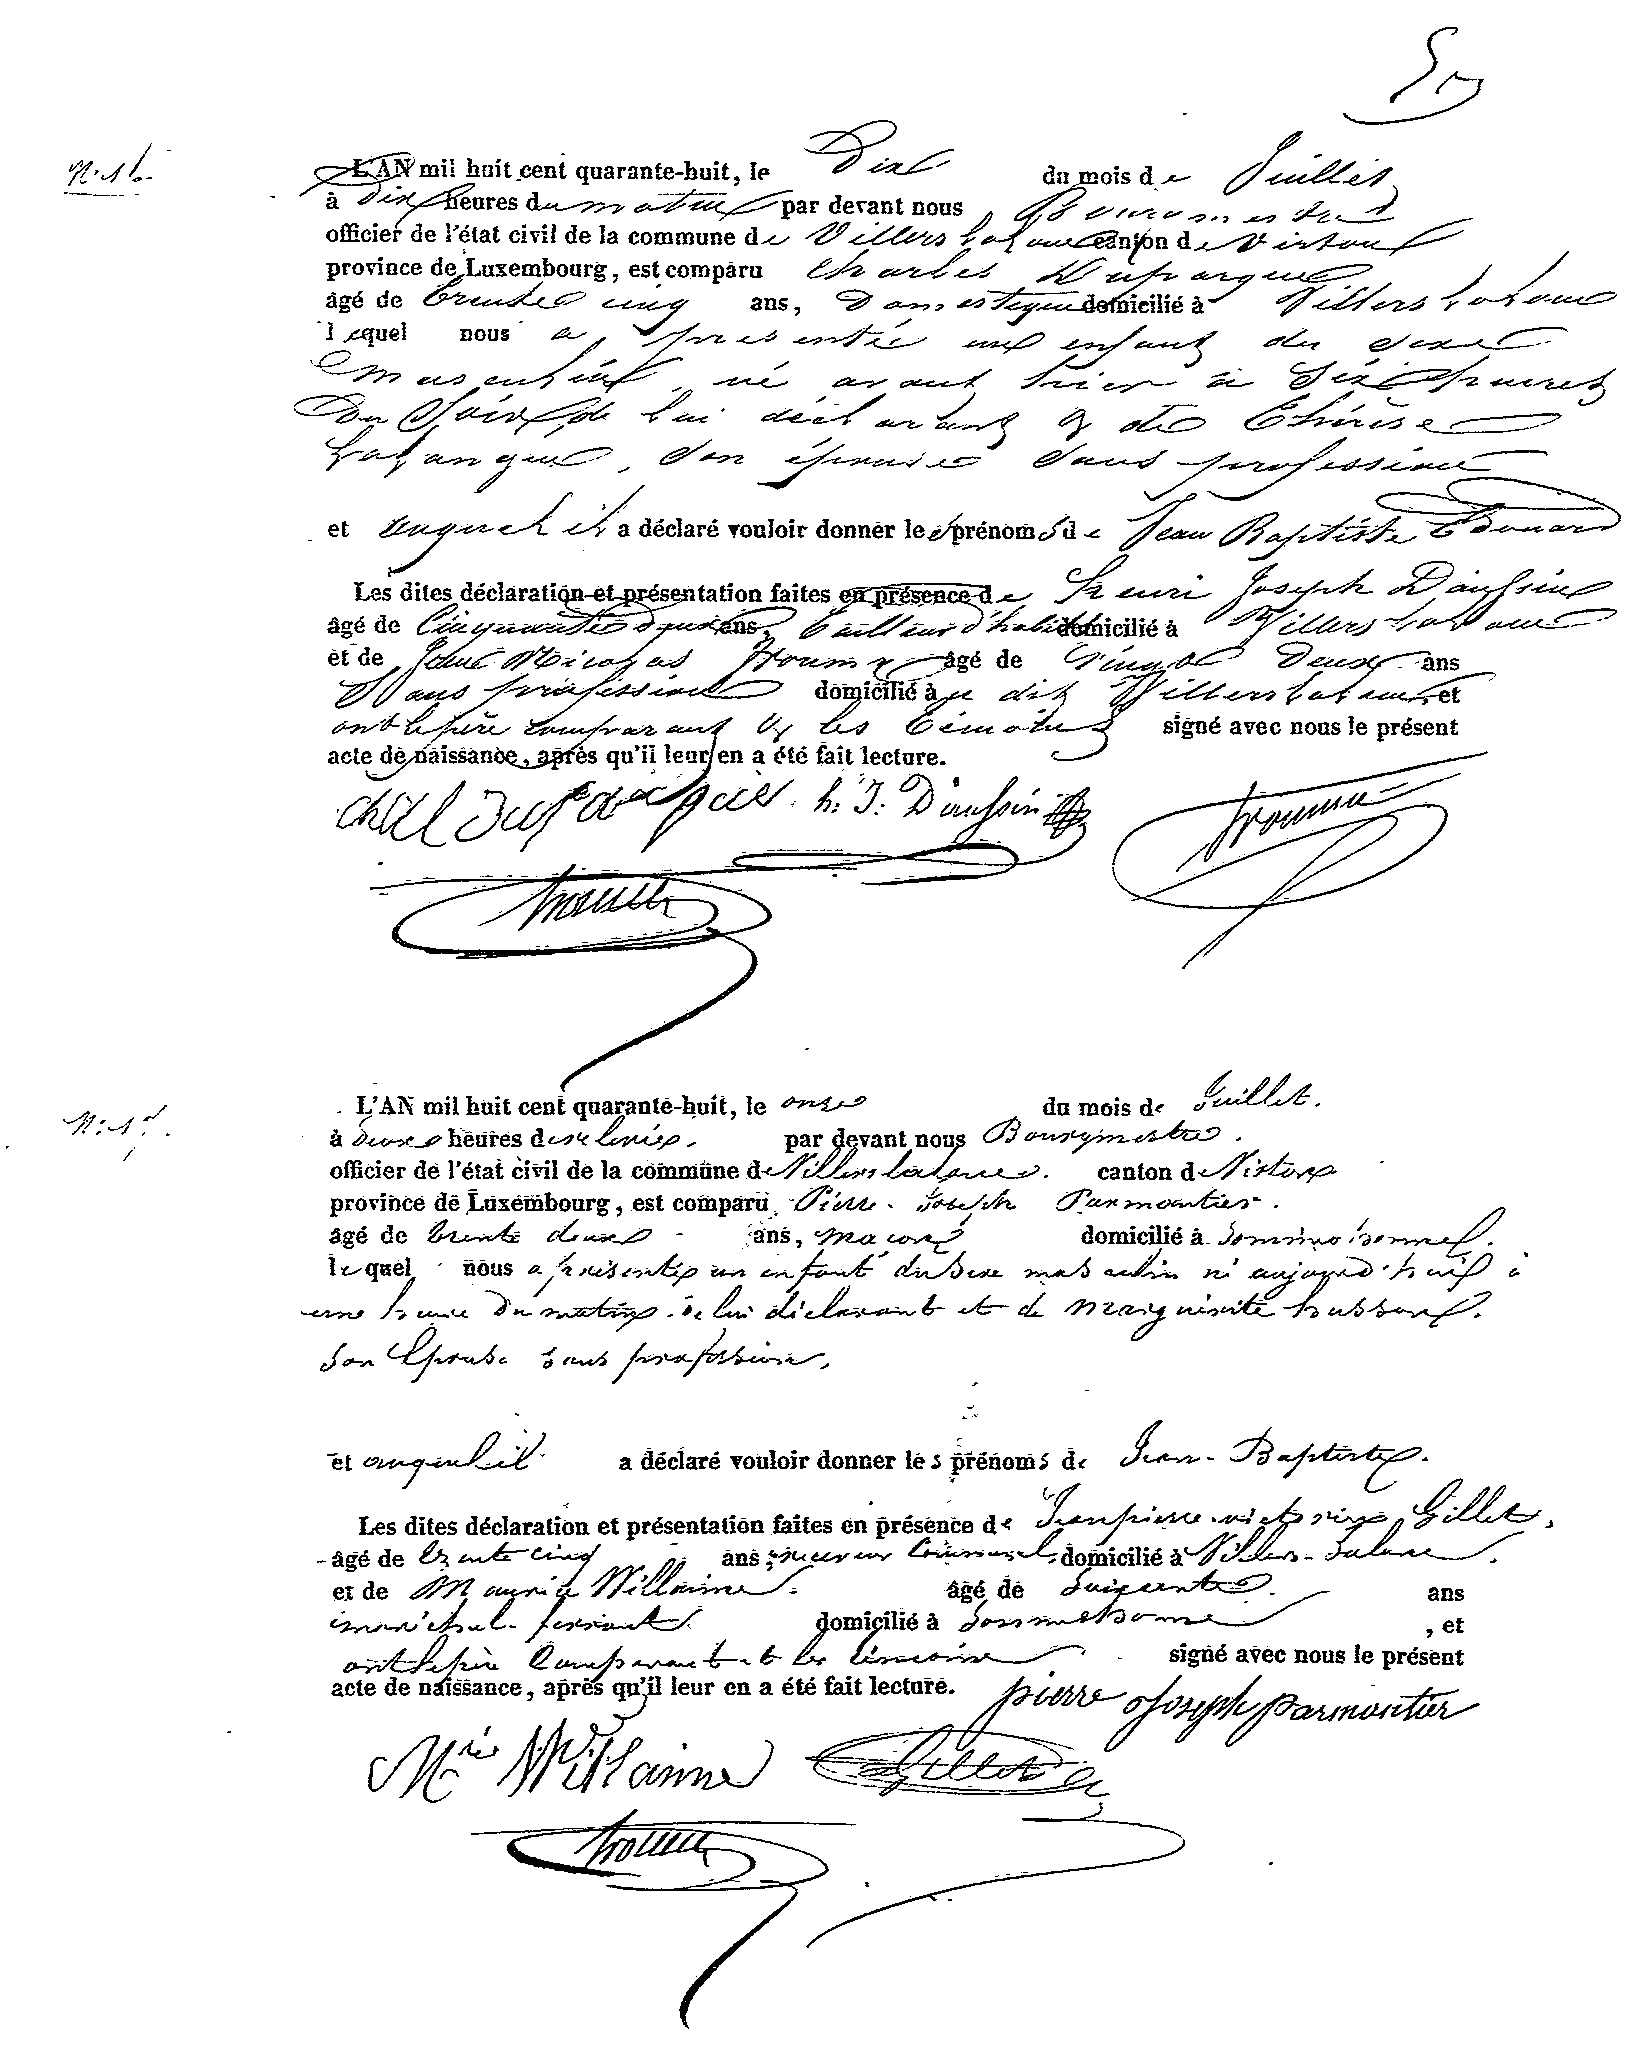 N: 16.
L'AN mil huit cent quarante-huit, le Dix du mois de Juillet
à Dix heures du matin par devant nous Bourgmestre
officier de l'état civil de la commune de Villers la loue canton de Virton
province de Luxembourg, est comparu Charles Duparque
âgé de trente cinq ans, Domestique domicilié à Villers la loue
lequel nous a présenté un enfant du sexe
masculin, né avant hier à Six heures
Du Soir, de lui déclarant & de Thérèse
Son épouse Sans profession
et auquel il a déclaré vouloir donner les prénoms de Jean Baptiste Edouard
Les dites déclaration et présentation faites en présence de Henri Joseph Dauphin
âgé de Cinquante deux ans, tailleur d'habits domicilié à Villers la loue
et de Jean Nicolas âgé de Vingt Deux ans
Sans profession domicilié à au dit Villers la loue, et
ont le père comparant & les témoins signé avec nous le présent
acte de naissance, après qu'il leur en a été fait lecture.
h. J. Dauphin
N: 17.
L'AN mil huit cent quarante-huit, le onze du mois de Juillet.
à deux heures de relevée. par devant nous Bourgmestre.
officier de l'état civil de la commune de Villers la loue. canton de Virton
province de Luxembourg, est comparu Pierre Joseph Parmentier.
âgé de trente deux ans, maçon domicilié à Sommethonne.
lequel nous a présenté un enfant du sexe masculin né aujourd'hui à
une heure du matin. de lui déclarant et de Marguerite husson.
son Epouse sans profession.
et auquel il a déclaré vouloir donner les prénoms de Jean-Baptiste.
Les dites déclaration et présentation faites en présence de Jean pierre victorin Gillet,
âgé de trente cinq ans, receveur Communal, domicilié à Villers-Laloue.
et de Maurice Willaime. âgé de Soixante. ans
maréchal ferrant. domicilié à Sommethonne, et
ont le père Comparant et les témoins signé avec nous le présent
acte de naissance, après qu'il leur en a été fait lecture. pierre Joseph parmentier
Mce Willaime Gillet